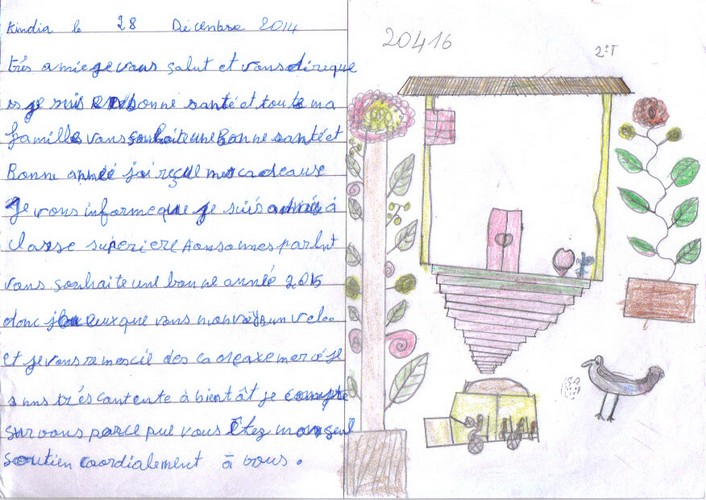 Kindia le 28 Décembre 2014
trés amie je vous salut et vous dire que
je suis bonne santé et toute ma
famille vous souhaite une Bonne santé et
Bonne année j'ai reçue mes cadeause
Je vous informe que je suis admis à
classe superiere Aonsommes parlnt
vous souhaite une bonne année 2015
donc je que vous un velo
et je vous remercié des cadeaxe mercé je
suis trés contente à bientât je compte
sur vous parce que vous êtez mon seul
soutien coordialement à vous.
20416
2°T